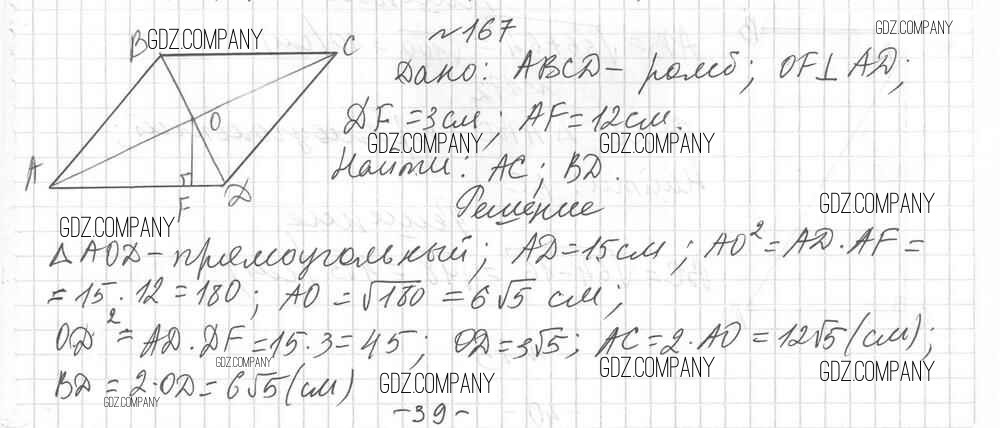 №167
B GDZ.COMPANY C GDZ.COMPANY
Дано: ABCD – ромб; OF⊥AD;
O
DF = 3 см; AF = 12 см.
GDZ.COMPANY GDZ.COMPANY
A Найти: AC; BD.
F D Решение GDZ.COMPANY
GDZ.COMPANY
△AOD – прямоугольный; AD = 15 см; AO² = AD · AF =
= 15 · 12 = 180; AO = √180 = 6√5 см;
OD² = AD · DF = 15 · 3 = 45; OD = 3√5; AC = 2 · AO = 12√5 (см);
GDZ.COMPANY GDZ.COMPANY GDZ.COMPANY
BD = 2 · OD = 6√5 (см) GDZ.COMPANY
GDZ.COMPANY
-39-